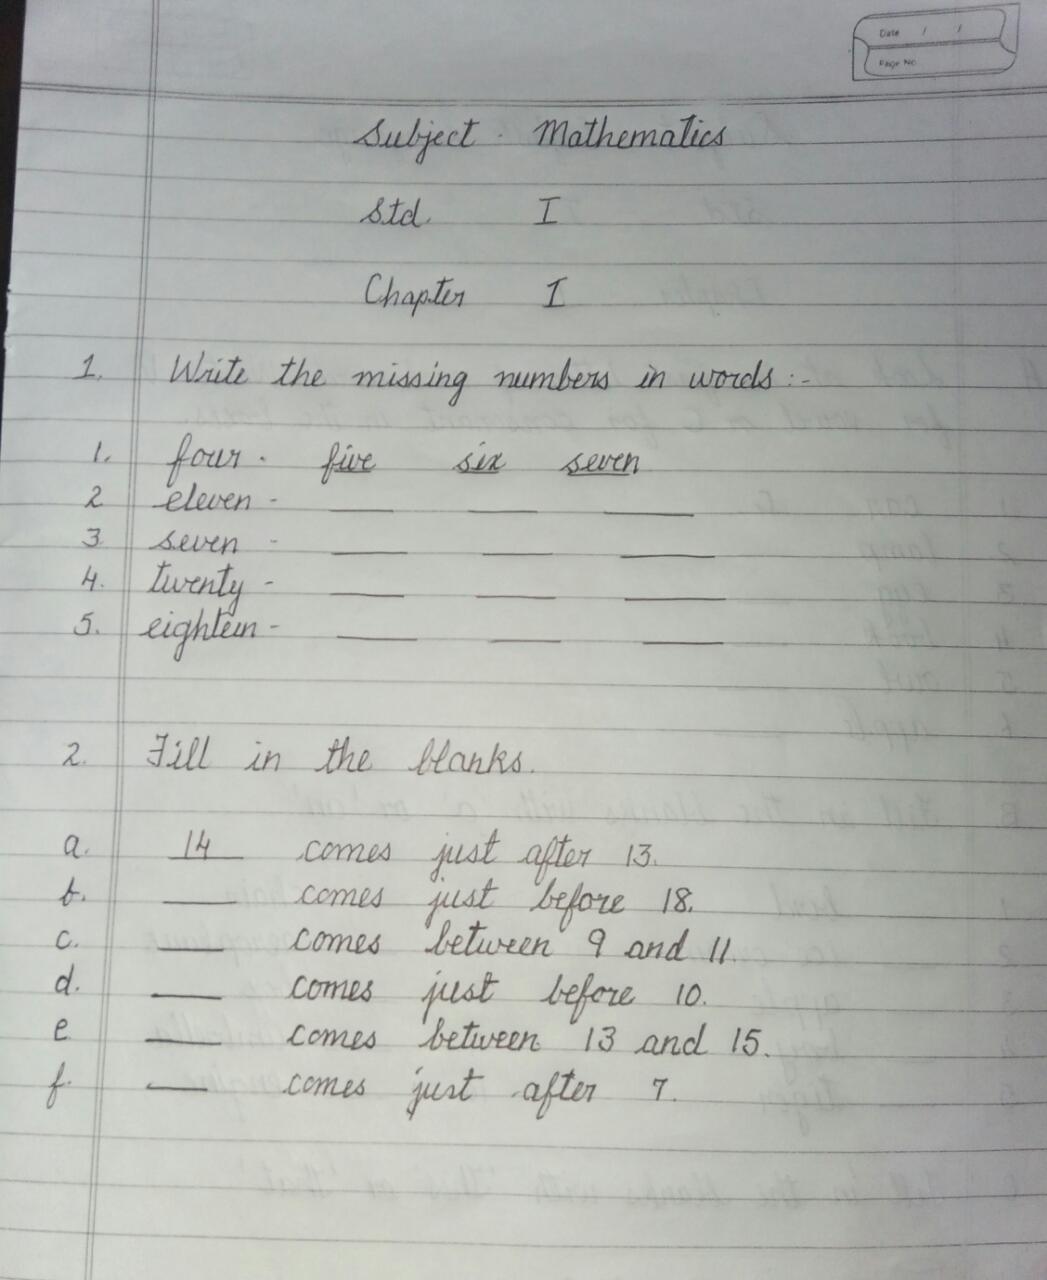 Date / /
Page No
Subject - Mathematics
Std. I
Chapter I
1. Write the missing numbers in words :-
1. four - five six seven
2 eleven - ___ ___ ___
3 seven - ___ ___ ___
4. twenty - ___ ___ ___
5. eighteen - ___ ___ ___
2. Fill in the blanks.
a. 14 comes just after 13.
b. ___ comes just before 18.
c. ___ comes between 9 and 11.
d. ___ comes just before 10.
e ___ comes between 13 and 15.
f. ___ comes just after 7.